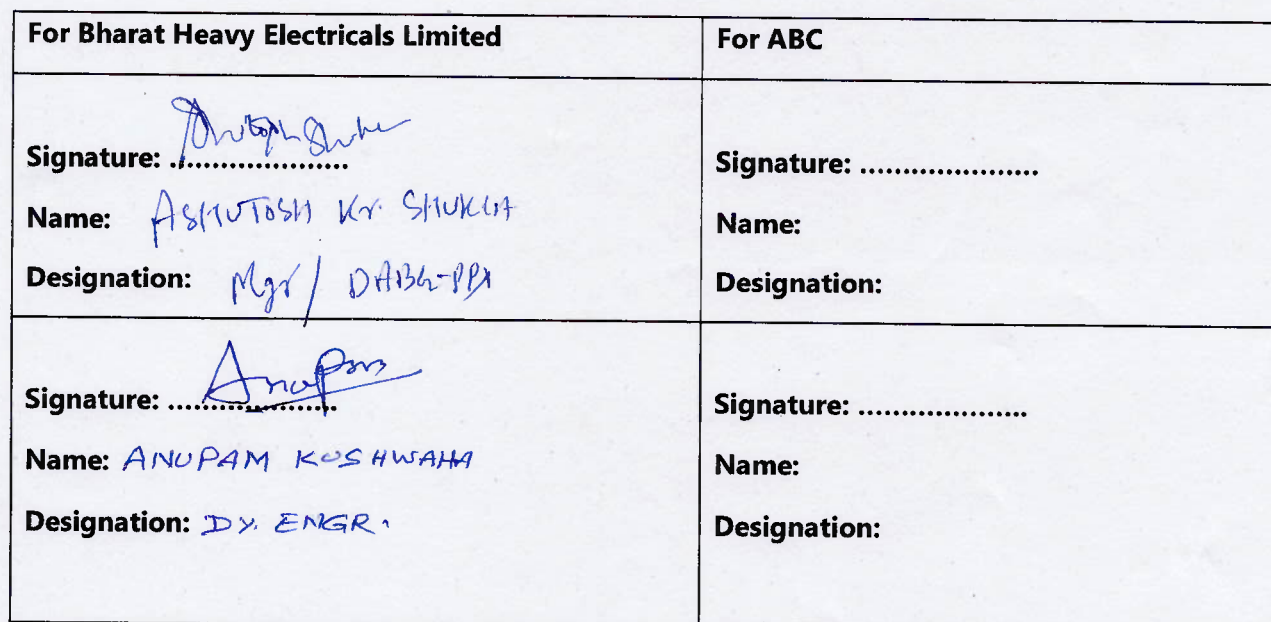 For Bharat Heavy Electricals Limited
For ABC
Signature: .....................
Name: ASHUTOSH Kr. SHUKLA
Designation: Mgr/
Signature: .....................
Name:
Designation:
Signature: Anupam
Name: ANUPAM KUSHWAHA
Designation: DY. ENGR.
Signature: ....................
Name:
Designation: